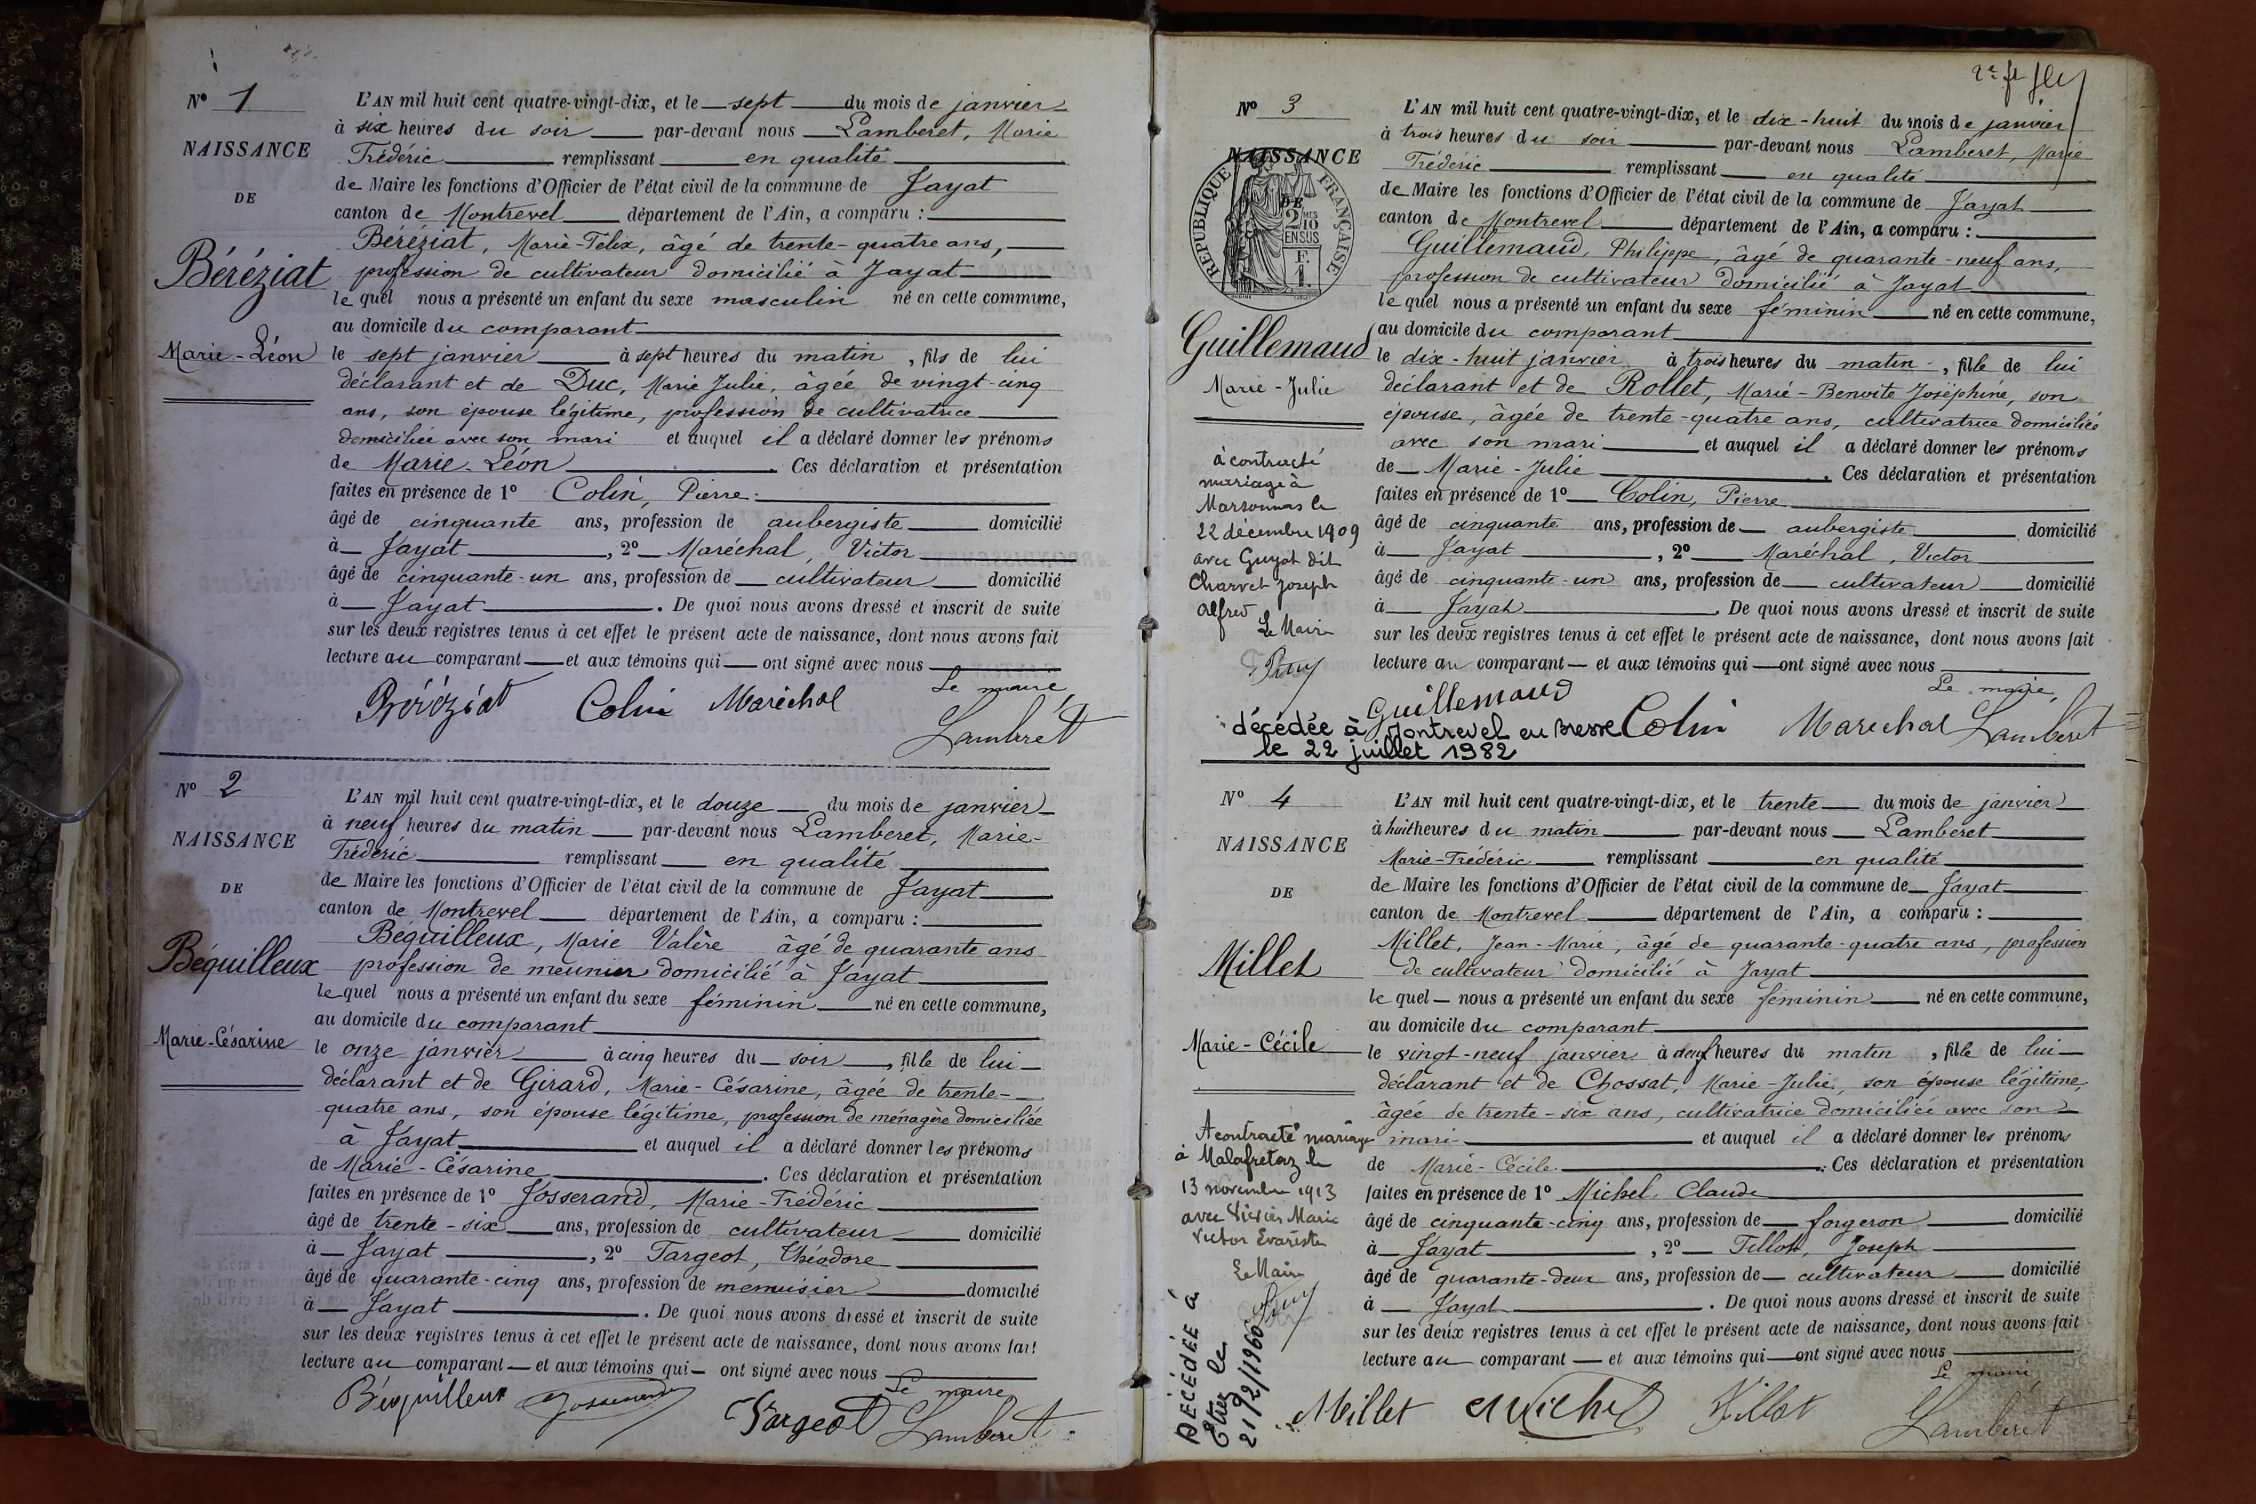 Nº 1
NAISSANCE
DE
Béréziat
Marie-Léon
L'AN mil huit cent quatre-vingt-dix, et le sept du mois de janvier
à six heures du soir par-devant nous Lamberet, Marie
Frédéric remplissant en qualité
de Maire les fonctions d'Officier de l'état civil de la commune de Jayat
canton de Montrevel département de l'Ain, a comparu :
Béréziat, Marie-Félix, âgé de trente-quatre ans,
profession de cultivateur domicilié à Jayat
le quel nous a présenté un enfant du sexe masculin né en cette commune,
au domicile du comparant
le sept janvier à sept heures du matin, fils de lui
déclarant et de Duc, Marie Julie, âgée de vingt-cinq
ans, son épouse légitime, profession de cultivatrice
domiciliée avec son mari et auquel il a déclaré donner les prénoms
de Marie-Léon. Ces déclaration et présentation
faites en présence de 1º Colin, Pierre
âgé de cinquante ans, profession de aubergiste domicilié
à Jayat, 2º Maréchal, Victor
âgé de cinquante-un ans, profession de cultivateur domicilié
à Jayat. De quoi nous avons dressé et inscrit de suite
sur les deux registres tenus à cet effet le présent acte de naissance, dont nous avons fait
lecture au comparant et aux témoins qui ont signé avec nous
Le maire,
Béréziat Colin Maréchal
Lamberet
Nº 2
NAISSANCE
DE
Béquilleux
Marie-Césarine
L'AN mil huit cent quatre-vingt-dix, et le douze du mois de janvier
à neuf heures du matin par-devant nous Lamberet, Marie-
Frédéric remplissant en qualité
de Maire les fonctions d'Officier de l'état civil de la commune de Jayat
canton de Montrevel département de l'Ain, a comparu :
Béquilleux, Marie Valère âgé de quarante ans
profession de meunier domicilié à Jayat
le quel nous a présenté un enfant du sexe féminin né en cette commune,
au domicile du comparant
le onze janvier à cinq heures du soir, fille de lui
déclarant et de Girard, Marie-Césarine, âgée de trente-
quatre ans, son épouse légitime, profession de ménagère domiciliée
à Jayat et auquel il a déclaré donner les prénoms
de Marie-Césarine. Ces déclaration et présentation
faites en présence de 1º Josserand, Marie-Frédéric
âgé de trente-six ans, profession de cultivateur domicilié
à Jayat, 2º Targeot, Théodore
âgé de quarante-cinq ans, profession de menuisier domicilié
à Jayat. De quoi nous avons dressé et inscrit de suite
sur les deux registres tenus à cet effet le présent acte de naissance, dont nous avons fait
lecture au comparant et aux témoins qui ont signé avec nous
Le maire
Béquilleux Josserand Targeot Lamberet
2e ft
Nº 3
NAISSANCE
DE
RÉPUBLIQUE FRANÇAISE
2 MES
10
EN SUS
F.
1.
Guillemaud
Marie-Julie
à contracté
mariage à
Marsonnas le
22 décembre 1909
avec Guyat dit
Charvet Joseph
Alfred
Le Maire
L'AN mil huit cent quatre-vingt-dix, et le dix-huit du mois de janvier
à trois heures du soir par-devant nous Lamberet, Marie
Frédéric remplissant en qualité
de Maire les fonctions d'Officier de l'état civil de la commune de Jayat
canton de Montrevel département de l'Ain, a comparu :
Guillemaud, Philippe, âgé de quarante-neuf ans,
profession de cultivateur domicilié à Jayat
le quel nous a présenté un enfant du sexe féminin né en cette commune,
au domicile du comparant
le dix-huit janvier à trois heures du matin, fille de lui
déclarant et de Rollet, Marie-Benoite Joséphine, son
épouse, âgée de trente-quatre ans, cultivatrice domiciliée
avec son mari et auquel il a déclaré donner les prénoms
de Marie-Julie. Ces déclaration et présentation
faites en présence de 1º Colin, Pierre
âgé de cinquante ans, profession de aubergiste domicilié
à Jayat, 2º Maréchal, Victor
âgé de cinquante-un ans, profession de cultivateur domicilié
à Jayat. De quoi nous avons dressé et inscrit de suite
sur les deux registres tenus à cet effet le présent acte de naissance, dont nous avons fait
lecture au comparant et aux témoins qui ont signé avec nous
Le maire,
Guillemaud Colin Marechal Lamberet
décédée à Montrevel en Bresse
le 22 juillet 1982
Nº 4
NAISSANCE
DE
Millet
Marie-Cécile
A contracté mariage
à Malafretaz le
13 novembre 1913
avec Vivier Marie
Victor Evariste
Le Maire
DÉCÉDÉE à
le
21/2/1960
L'AN mil huit cent quatre-vingt-dix, et le trente du mois de janvier
à huit heures du matin par-devant nous Lamberet
Marie-Frédéric remplissant en qualité
de Maire les fonctions d'Officier de l'état civil de la commune de Jayat
canton de Montrevel département de l'Ain, a comparu :
Millet, Jean-Marie, âgé de quarante-quatre ans, profession
de cultivateur domicilié à Jayat
le quel nous a présenté un enfant du sexe féminin né en cette commune,
au domicile du comparant
le vingt-neuf janvier à neuf heures du matin, fille de lui
déclarant et de Chossat, Marie-Julie, son épouse légitime,
âgée de trente-six ans, cultivatrice domiciliée avec son
mari et auquel il a déclaré donner les prénoms
de Marie-Cécile. Ces déclaration et présentation
faites en présence de 1º Michel, Claude
âgé de cinquante-cinq ans, profession de forgeron domicilié
à Jayat, 2º Tillot, Joseph
âgé de quarante-deux ans, profession de cultivateur domicilié
à Jayat. De quoi nous avons dressé et inscrit de suite
sur les deux registres tenus à cet effet le présent acte de naissance, dont nous avons fait
lecture au comparant et aux témoins qui ont signé avec nous
Le maire
Millet Michel Tillot Lamberet